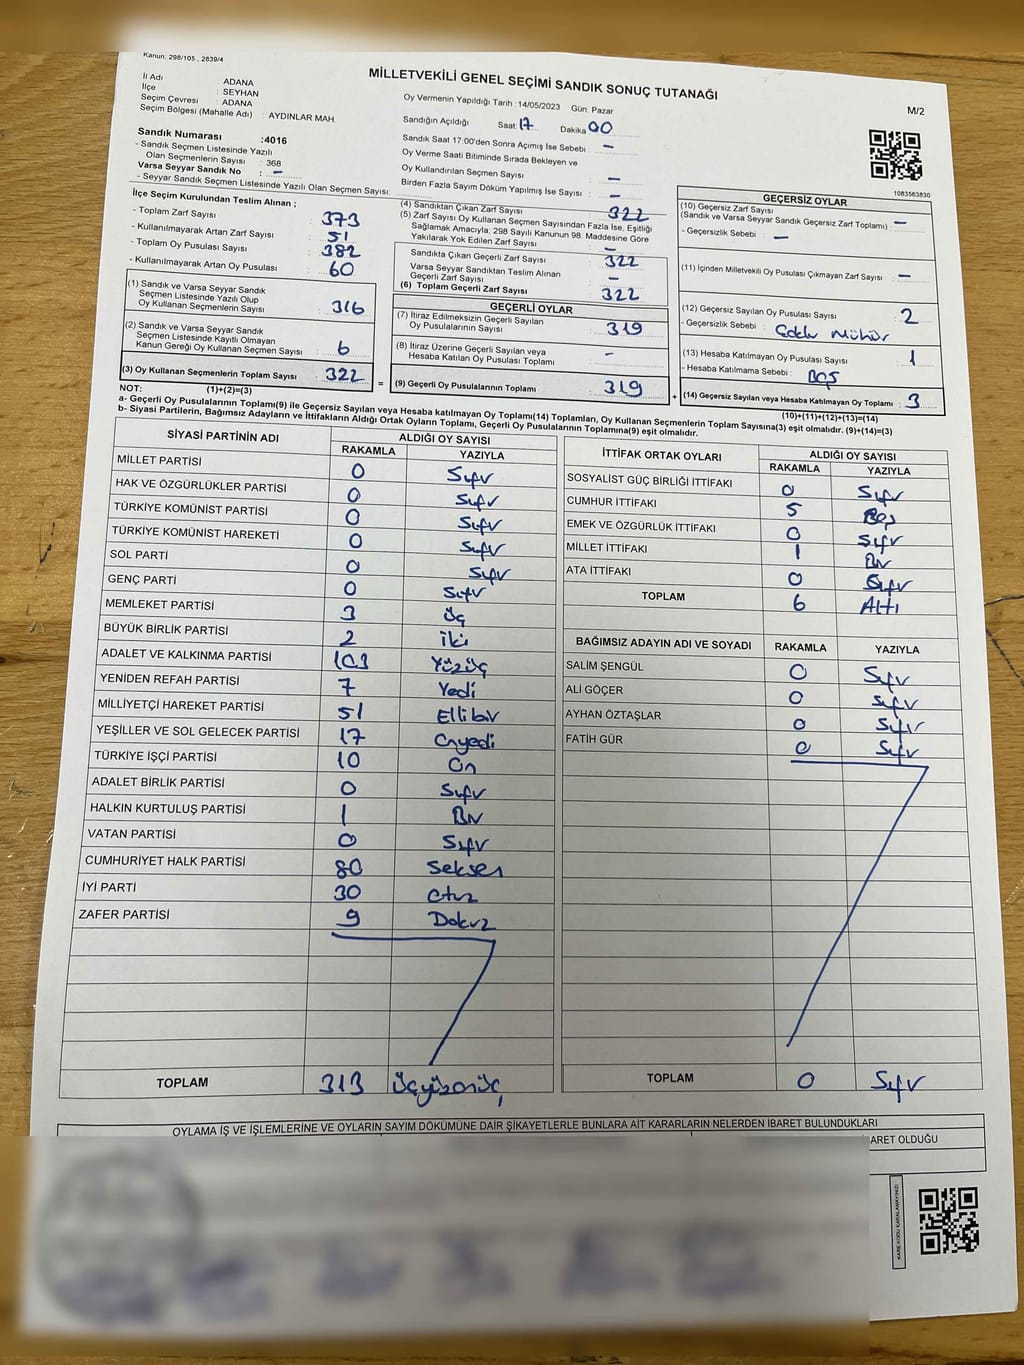 Kanun: 298/105 , 2839/4
MİLLETVEKİLİ GENEL SEÇİMİ SANDIK SONUÇ TUTANAĞI
M/2
İl Adı : ADANA
İlçe : SEYHAN
Seçim Çevresi : ADANA
Seçim Bölgesi (Mahalle Adı) : AYDINLAR MAH.
Sandık Numarası :4016
- Sandık Seçmen Listesinde Yazılı
Olan Seçmenlerin Sayısı : 368
Varsa Seyyar Sandık No : -
- Seyyar Sandık Seçmen Listesinde Yazılı Olan Seçmen Sayısı:
Oy Vermenin Yapıldığı Tarih : 14/05/2023 Gün: Pazar
Sandığın Açıldığı Saat: 17 Dakika 00
Sandık Saat 17:00'den Sonra Açımış İse Sebebi : -
Oy Verme Saati Bitiminde Sırada Bekleyen ve
Oy Kullandırılan Seçmen Sayısı : -
Birden Fazla Sayım Döküm Yapılmış İse Sayısı : -
1083563830
İlçe Seçim Kurulundan Teslim Alınan ;
- Toplam Zarf Sayısı : 373
- Kullanılmayarak Artan Zarf Sayısı : 51
- Toplam Oy Pusulası Sayısı : 382
- Kullanılmayarak Artan Oy Pusulası : 60
(1) Sandık ve Varsa Seyyar Sandık
Seçmen Listesinde Yazılı Olup
Oy Kullanan Seçmenlerin Sayısı : 316
(2) Sandık ve Varsa Seyyar Sandık
Seçmen Listesinde Kayıtlı Olmayan
Kanun Gereği Oy Kullanan Seçmen Sayısı : 6
(3) Oy Kullanan Seçmenlerin Toplam Sayısı : 322
(4) Sandıktan Çıkan Zarf Sayısı : 322
(5) Zarf Sayısı Oy Kullanan Seçmen Sayısından Fazla İse, Eşitliği
Sağlamak Amacıyla, 298 Sayılı Kanunun 98. Maddesine Göre
Yakılarak Yok Edilen Zarf Sayısı : -
Sandıkta Çıkan Geçerli Zarf Sayısı : 322
Varsa Seyyar Sandıktan Teslim Alınan
Geçerli Zarf Sayısı : -
(6) Toplam Geçerli Zarf Sayısı : 322
GEÇERLİ OYLAR
(7) İtiraz Edilmeksizin Geçerli Sayılan
Oy Pusulalarının Sayısı : 319
(8) İtiraz Üzerine Geçerli Sayılan veya
Hesaba Katılan Oy Pusulası Toplamı : -
= (9) Geçerli Oy Pusulalarının Toplamı : 319 +
GEÇERSİZ OYLAR
(10) Geçersiz Zarf Sayısı
(Sandık ve Varsa Seyyar Sandık Geçersiz Zarf Toplamı) : -
- Geçersizlik Sebebi : -
(11) İçinden Milletvekili Oy Pusulası Çıkmayan Zarf Sayısı : -
(12) Geçersiz Sayılan Oy Pusulası Sayısı : 2
- Geçersizlik Sebebi : Çoklu Mühür
(13) Hesaba Katılmayan Oy Pusulası Sayısı : 1
- Hesaba Katılmama Sebebi : Boş
(14) Geçersiz Sayılan veya Hesaba Katılmayan Oy Toplamı : 3
NOT: (1)+(2)=(3)
(10)+(11)+(12)+(13)=(14)
a- Geçerli Oy Pusulalarının Toplamı(9) ile Geçersiz Sayılan veya Hesaba katılmayan Oy Toplamı(14) Toplamları, Oy Kullanan Seçmenlerin Toplam Sayısına(3) eşit olmalıdır. (9)+(14)=(3)
b- Siyasi Partilerin, Bağımsız Adayların ve İttifakların Aldığı Ortak Oyların Toplamı, Geçerli Oy Pusulalarının Toplamına(9) eşit olmalıdır.
SİYASİ PARTİNİN ADI ALDIĞI OY SAYISI
RAKAMLA YAZIYLA
MİLLET PARTİSİ 0 Sıfır
HAK VE ÖZGÜRLÜKLER PARTİSİ 0 Sıfır
TÜRKİYE KOMÜNİST PARTİSİ 0 Sıfır
TÜRKİYE KOMÜNİST HAREKETİ 0 Sıfır
SOL PARTİ 0 Sıfır
GENÇ PARTİ 0 Sıfır
MEMLEKET PARTİSİ 3 Üç
BÜYÜK BİRLİK PARTİSİ 2 İki
ADALET VE KALKINMA PARTİSİ 103 Yüzüç
YENİDEN REFAH PARTİSİ 7 Yedi
MİLLİYETÇİ HAREKET PARTİSİ 51 Ellibir
YEŞİLLER VE SOL GELECEK PARTİSİ 17 Onyedi
TÜRKİYE İŞÇİ PARTİSİ 10 On
ADALET BİRLİK PARTİSİ 0 Sıfır
HALKIN KURTULUŞ PARTİSİ 1 Bir
VATAN PARTİSİ 0 Sıfır
CUMHURİYET HALK PARTİSİ 80 Seksen
İYİ PARTİ 30 Otuz
ZAFER PARTİSİ 9 Dokuz
TOPLAM 313 Üçyüzonüç
İTTİFAK ORTAK OYLARI ALDIĞI OY SAYISI
RAKAMLA YAZIYLA
SOSYALİST GÜÇ BİRLİĞİ İTTİFAKI 0 Sıfır
CUMHUR İTTİFAKI 5 Beş
EMEK VE ÖZGÜRLÜK İTTİFAKI 0 Sıfır
MİLLET İTTİFAKI 1 Bir
ATA İTTİFAKI 0 Sıfır
TOPLAM 6 Altı
BAĞIMSIZ ADAYIN ADI VE SOYADI RAKAMLA YAZIYLA
SALİM ŞENGÜL 0 Sıfır
ALİ GÖÇER 0 Sıfır
AYHAN ÖZTAŞLAR 0 Sıfır
FATİH GÜR 0 Sıfır
TOPLAM 0 Sıfır
OYLAMA İŞ VE İŞLEMLERİNE VE OYLARIN SAYIM DÖKÜMÜNE DAİR ŞİKAYETLERLE BUNLARA AİT KARARLARIN NELERDEN İBARET BULUNDUKLARI
BARET OLDUĞU
KARE KODU KARALAMAYINIZ!